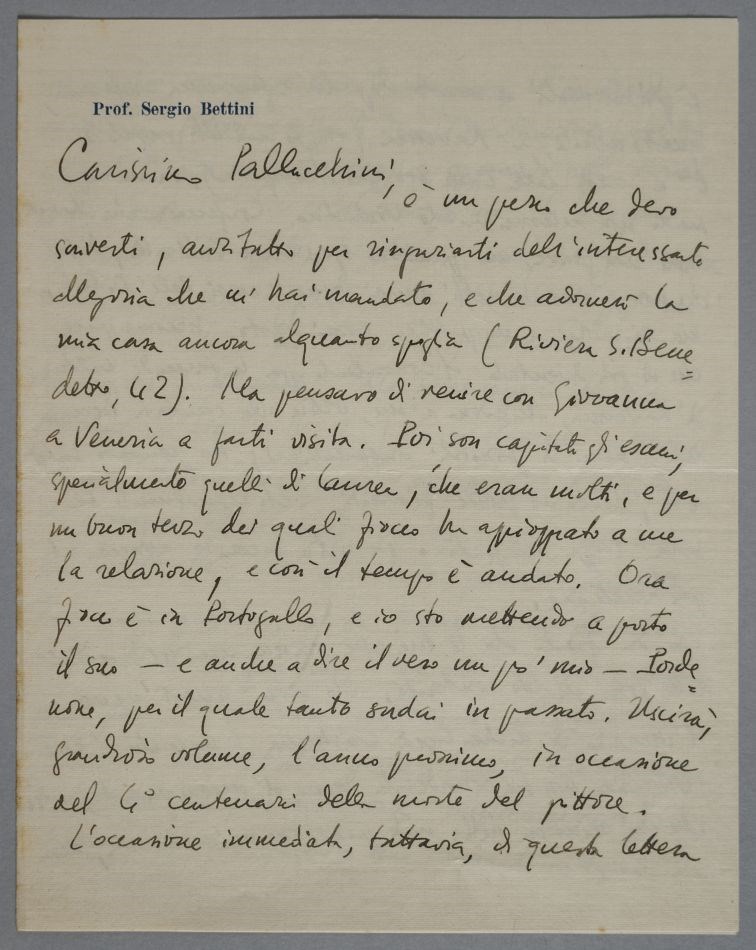 Prof. Sergio Bettini
Carissimo Pallucchini,
è un pezzo che devo
scriverti, anzitutto per ringraziarti dell'interessante
allegoria che m'hai mandato, e che adornerà la
mia casa ancora alquanto spoglia (Riviera S. Bene=
detto, 42). Ma pensavo di venire con Giovanna
a Venezia a farti visita. Poi son capitati gli esami,
specialmente quelli di laurea, che eran molti, e per
un buon terzo dei quali Fiocco ha appioppato a me
la relazione, e così il tempo è andato. Ora
Fiocco è in Portogallo, e io sto mettendo a posto
il suo — e anche a dire il vero un po' mio — Porde=
none, per il quale tanto sudai in passato. Uscirà,
grandioso volume, l'anno prossimo, in occasione
del 4° centenario della morte del pittore.
L'occasione immediata, tuttavia, di questa lettera